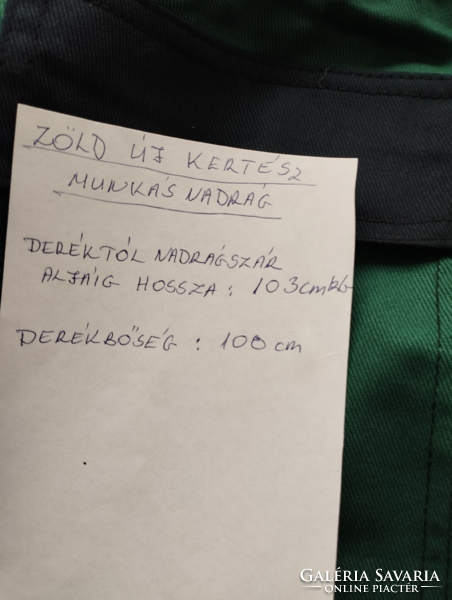 ZÖLD ÚJ KERTÉSZ
MUNKÁS NADRÁG
DERÉKTÓL NADRÁGSZÁR
ALJÁIG HOSSZA : 103cm kb
DERÉKBŐSÉG : 100 cm
GALÉRIA SAVARIA
ONLINE PIACTÉR